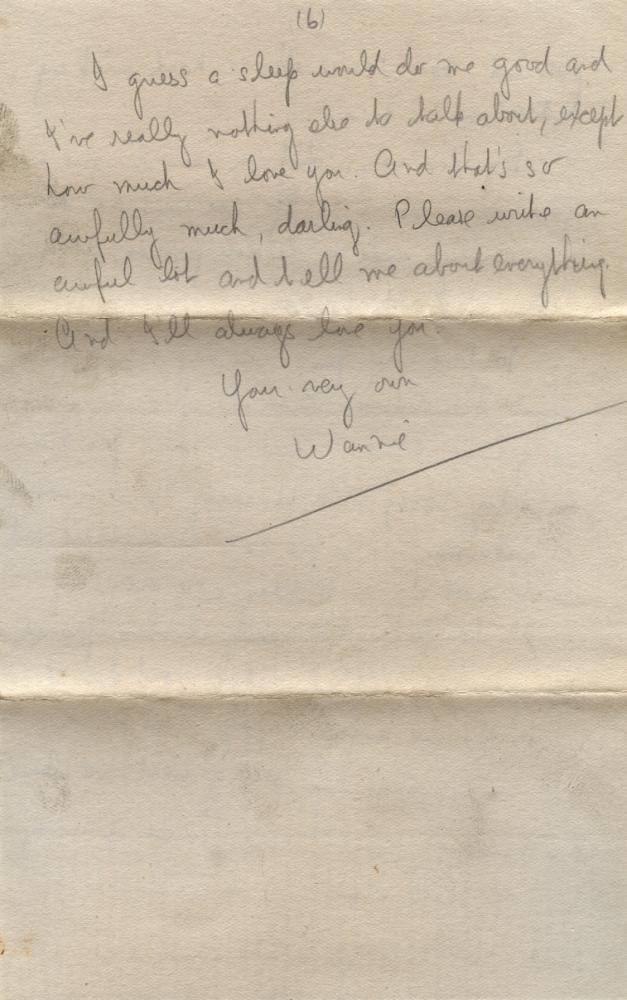 (6)
I guess a sleep would do me good and
I've really nothing else to talk about, except
how much I love you. And that's so
awfully much, darling. Please write an
awful lot and tell me about everything.
And I'll always love you.
Your very own
Wannie